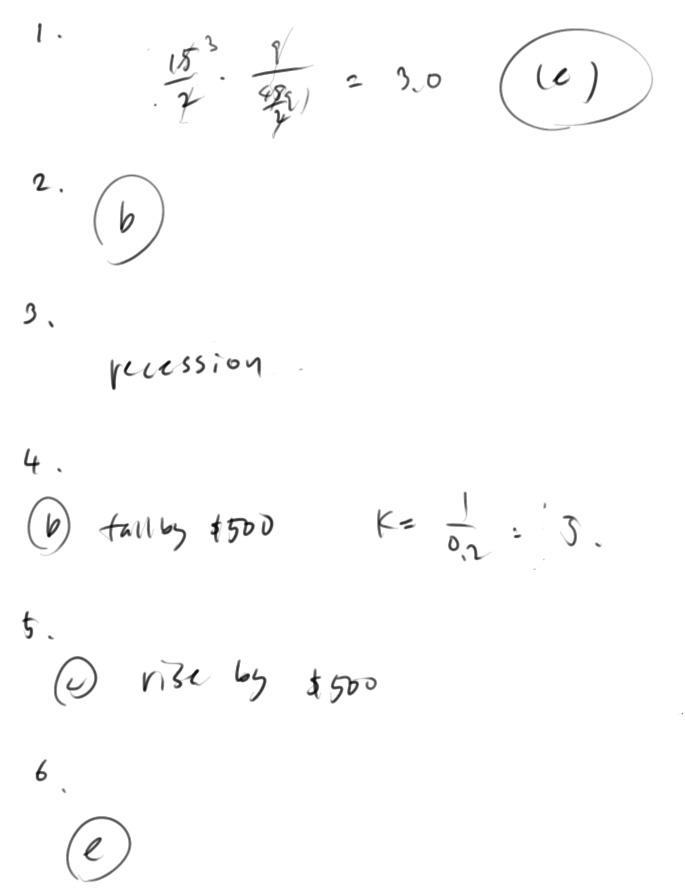 1.
15/2 · 9/(45/2) = 3.0 (c)
2.
b
3.
recession
4.
(b) fall by $500 K = 1/0.2 = 5.
5.
(c) rise by $500
6.
e